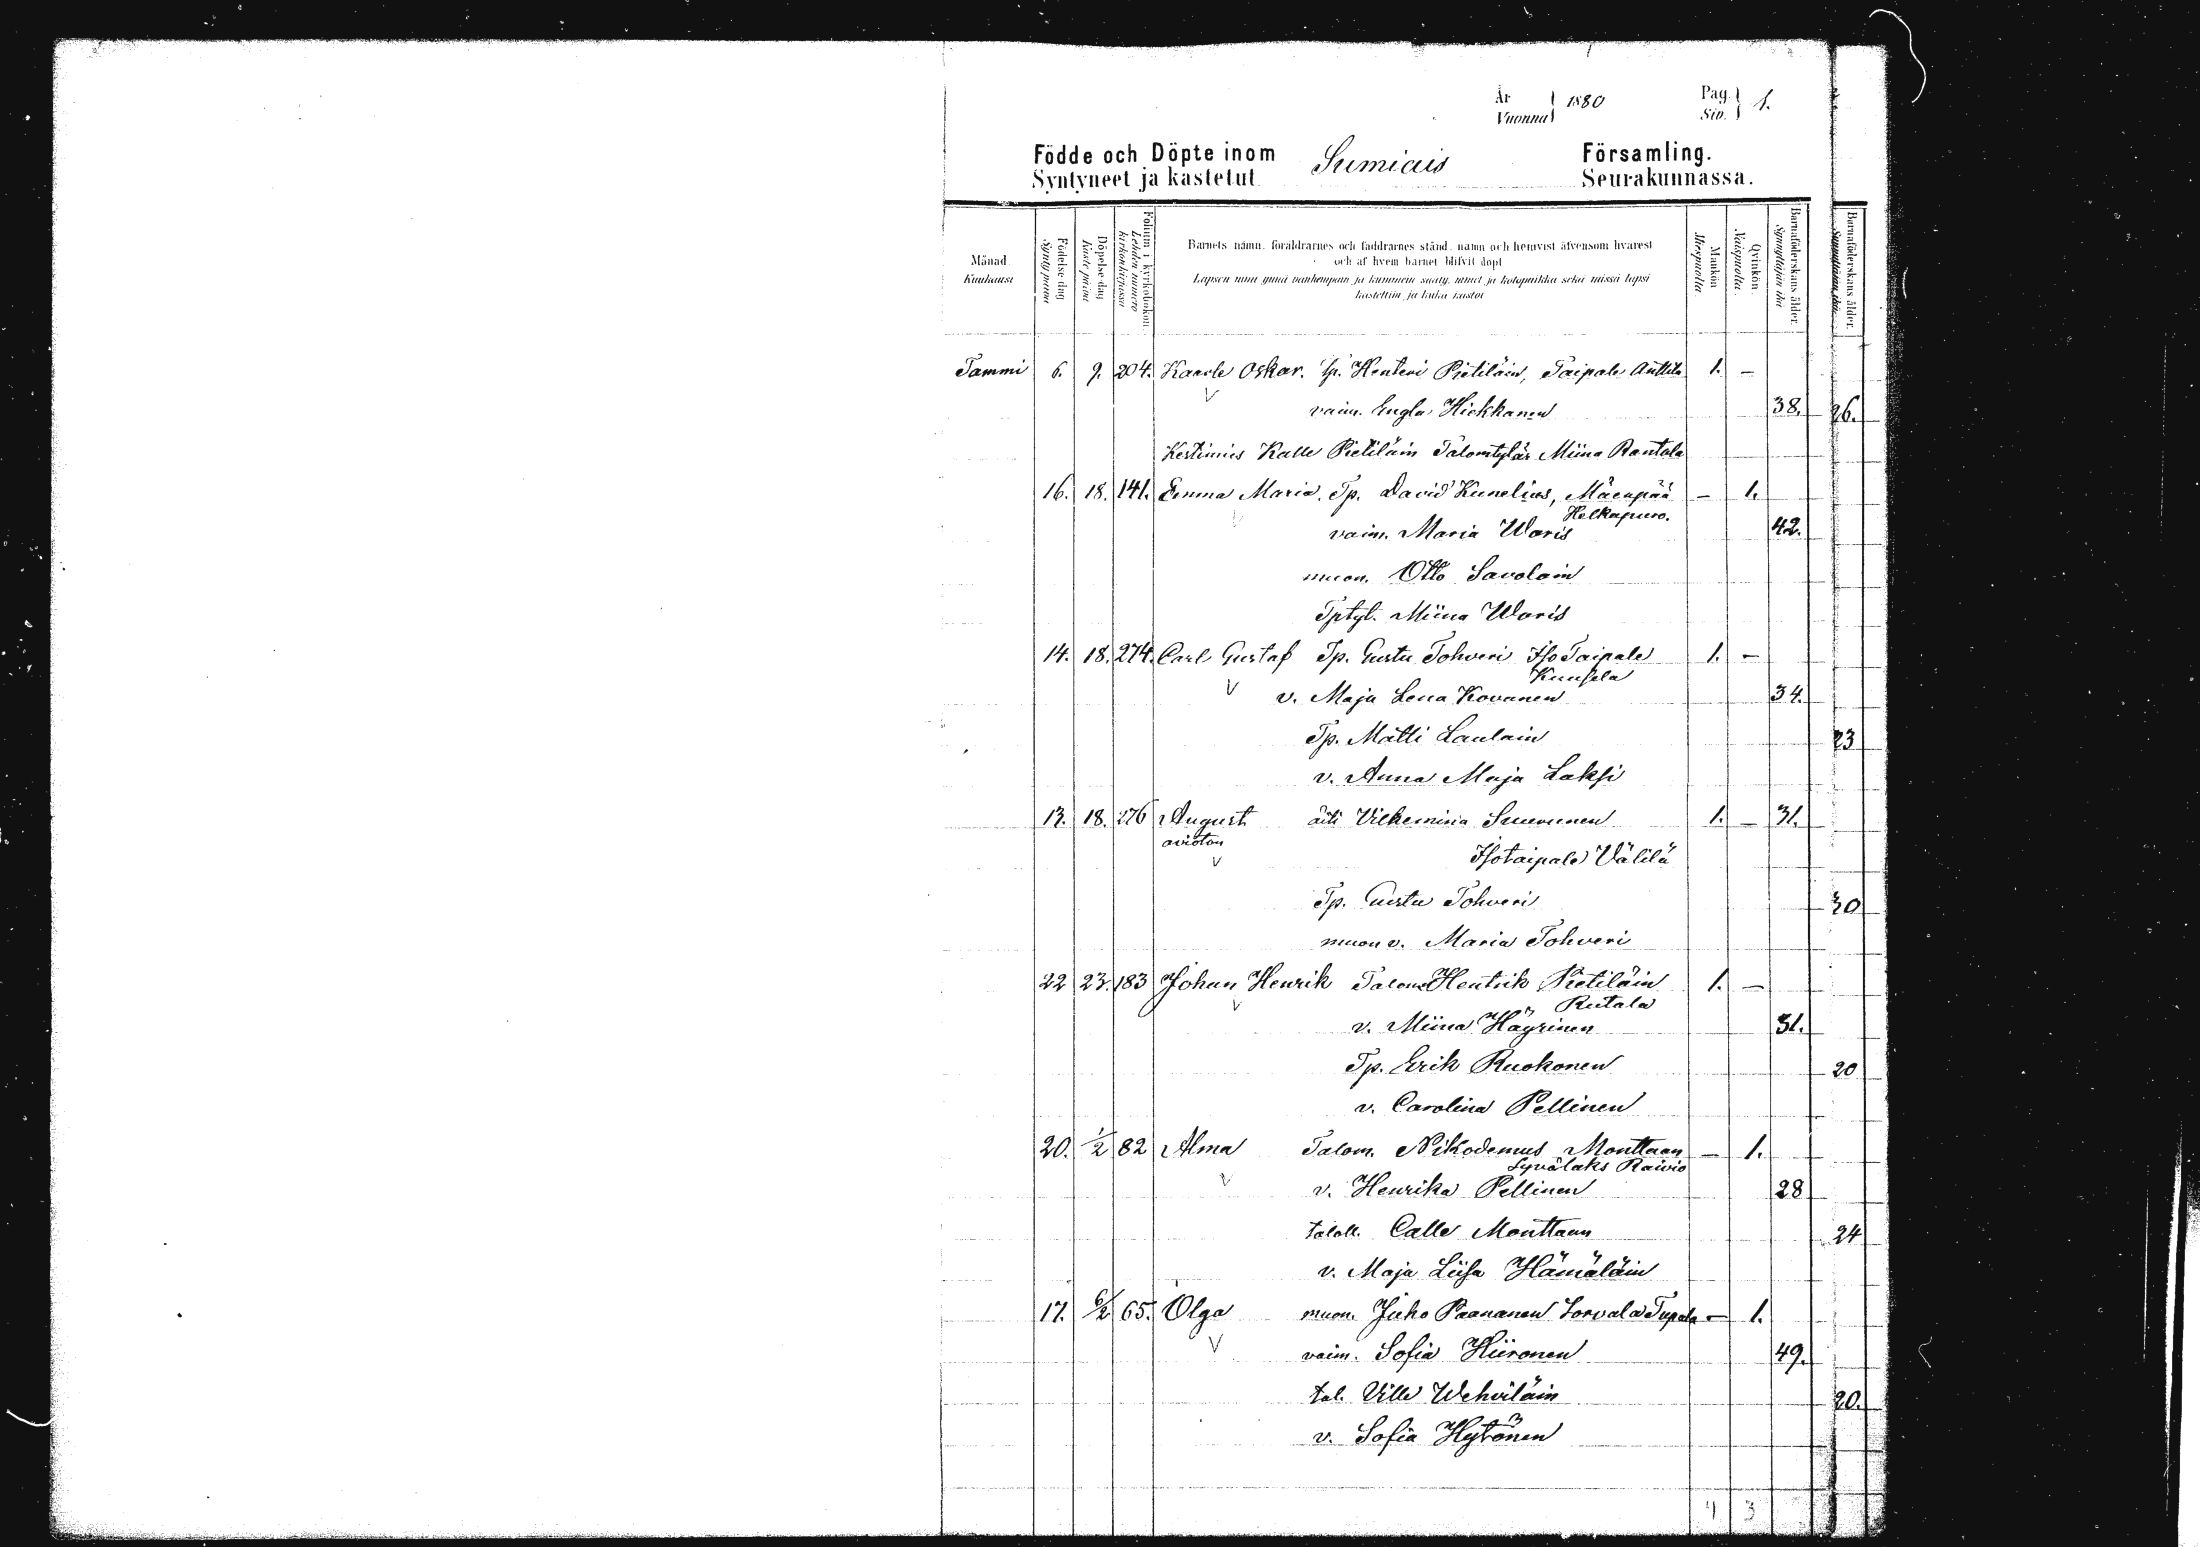 År 1880 Pag. 1.
Vuonna Siv.
Födde och Döpte inom Sumiais Församling.
Syntyneet ja kastetut Seurakunnassa.
Månad. Kuukausi
Födelse dag Synty päivä
Döpelse dag Kaste päivä
Folium i kyrkoboken. Lehden numero kirkonkirjassa
Barnets namn, föräldrarnes och faddrarnes stånd, namn och hemvist äfvensom hvarest
och af hvem barnet blifvit döpt
Lapsen nimi ynnä vanhempain ja kummein sääty, nimet ja kotopaikka sekä missä lapsi
kastettiin ja kuka kastoi
Mankön Miespuolta
Qvinkön. Naispuolta.
Barnaföderskans ålder. Synnyttäjän ikä
Barnaföderskans ålder. Synnyttäjän ikä
Tammi 6. 9. 204. Kaarle Oskar. Tp. Henteri Pietiläin, Taipale Anttila 1. —
vaim. Engla Hickkanen 38. 26.
Kestimies Kalle Pietiläin Talontytär Miina Rantala
16. 18. 141. Emma Maria. Tp. David Kunelius, Mäenpää — 1.
Helkapuro.
vaim. Maria Waris 42.
muon. Otto Savolain
Tptyt. Miina Waris
14. 18. 274. Carl Gustaf Tp. Gustu Tohveri Iso Taipale 1. —
Kunsela
v. Maja Lena Kovanen 34.
Tp. Matti Laulain 23
v. Anna Maja Laksi
13. 18. 276 August äiti Vilhemina Suuronen 1. — 31.
avioton
Isotaipale Välilä
Tp. Gustu Tohveri 30
muon v. Maria Tohveri
22 23. 183 Johan Henrik Talom Hentrik Pietiläin 1. —
Rutala
v. Miina Häyrinen 31.
Tp. Erik Ruokonen 20
v. Carolina Pellinen
20. 1/2 82 Alma Talom. Nikodemus Monttaan — 1.
Syvälaks Raivio
v. Henrika Pellinen 28
taloll. Calle Monttaan 24
v. Maja Liisa Hämäläin
17. 6/2 65. Olga muon. Juho Paananen Sorvala Tupala — 1.
vaim. Sofia Hiironen 49.
tal. Ville Wehviläin 20.
v. Sofia Hytönen
4 3